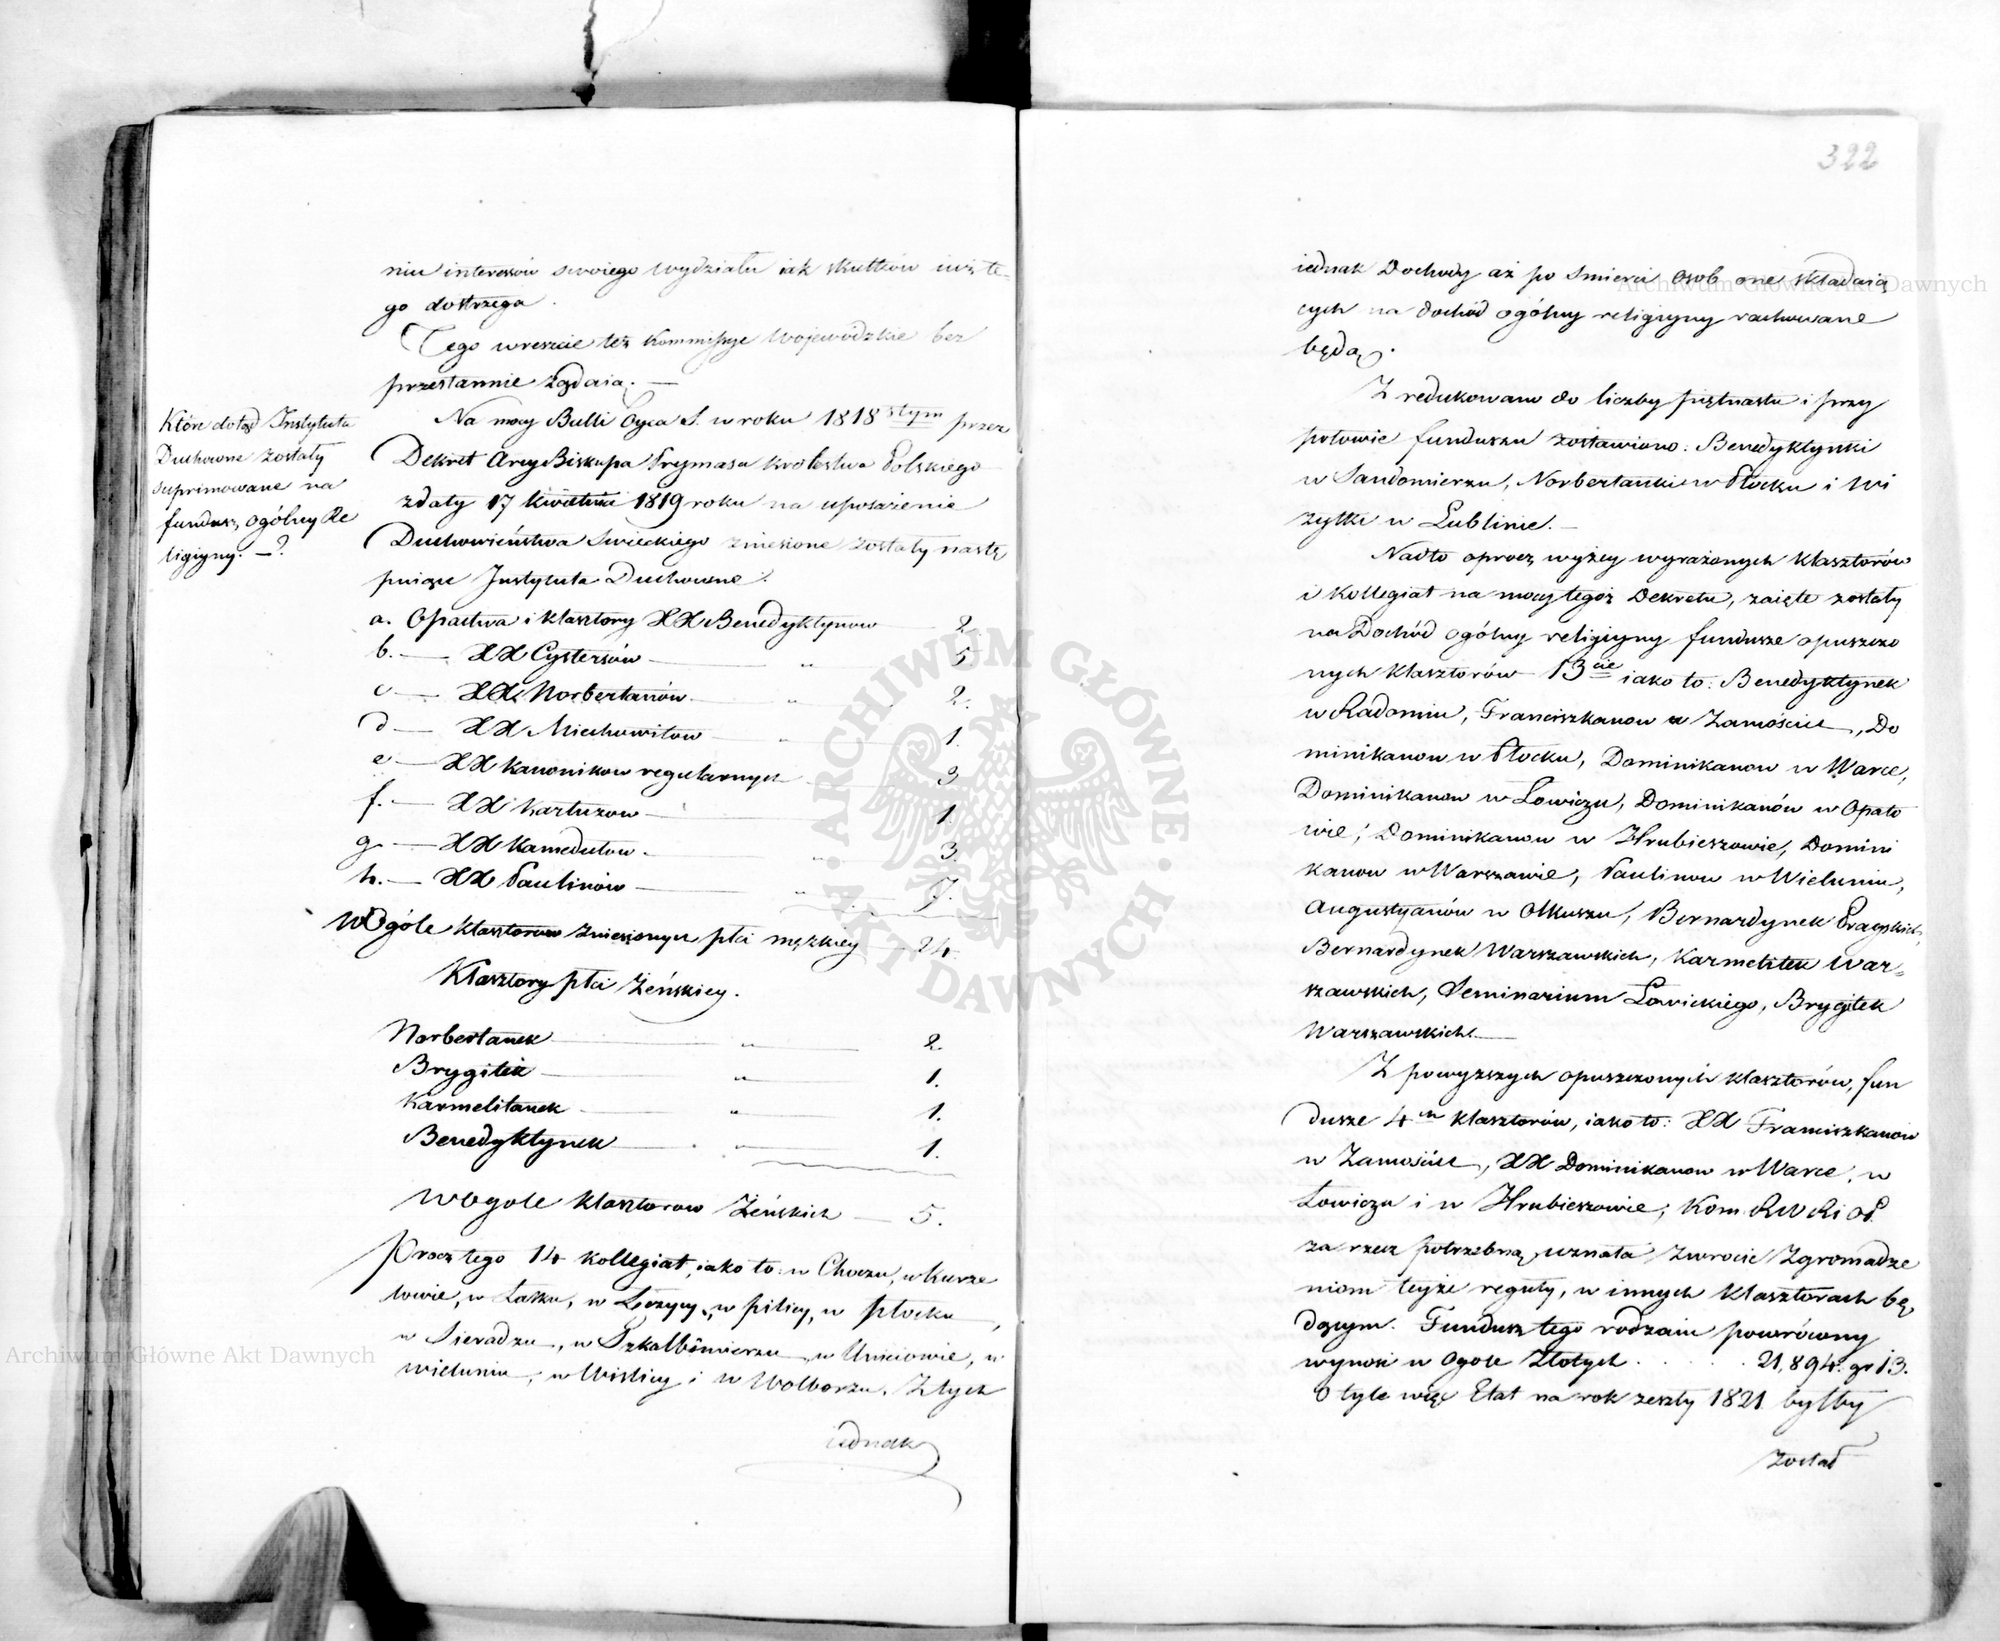 niu interessów swoiego Wydziału iak skutków iuż te-
go dostrzega.
Tego wreszcie też Kommissye Wojewódzkie bez
przestannie żądaią. —
Które dotąd Instytuta
Duchowne zostały
suprimowane na
fundusz ogólny Re
ligiyny. —?
Na mocy Bulli Oyca S. w roku 1818stym przez
Dekret ArcyBiskupa Prymasa Krolestwa Polskiego
zdaty 17 Kwietnia 1819 roku na uposażenie
Duchowieństwa Swieckiego zniesione zostały nastę
puiące Instytuta Duchowne:
a. Opactwa i klasztory XX Benedyktynow — 2.
b. — XX Cystersów — „ — 5
c — XX Norbertanów — „ — 2.
d — XX Miechowitow — „ — 1.
e — XX Kanonikow regularnych — 3
f. — XX Kartuzow — 1.
g — XX Kamedułow — „ — 3.
h. — XX Paulinów — „ — 7.
WOgóle klasztorow zniesionych płci męzkiey — 24.
Klasztory płci Żeńskiey.
Norbertanek — „ — 2.
Brygitek — „ — 1.
Karmelitanek — „ — 1.
Benedyktynek — „ — 1.
WOgole klasztorow Żeńskich — 5.
Procz tego 14 kollegiat, iako to: w Choczu, w Kurze
lowie, w Łasku, w Łęczycy, w Pilicy, w Płocku,
w Sieradzu, w Szkalbimierzu, w Uniejowie, w
Wieluniu, w Wislicy i w Wolborzu. Z tych
iednak
322
iednak Dochody aż po Smierci Osob one składaią
cych na dochód ogólny religiyny rachowane
będą.
Z redukowano do liczby piętnastu i przy
połowie funduszu zostawiono: Benedyktynki
w Sandomierzu, Norbertanki w Płocku i Wi
zytki w Lublinie. —
Nadto oprocz wyżey wyrażonych klasztorów
i kollegiat na mocy tegoż Dekretu, zaięte zostały
na Dochód ogólny religiyny fundusze opuszczo
nych klasztorów 13cie iako to: Benedyktynek
w Radomiu, Franciszkanow w Zamościu, Do
minikanow w Płocku, Dominikanow w Warce,
Dominikanow w Łowiczu, Dominikanów w Opato
wie, Dominikanow w Hrubieszowie, Domini
kanow w Warszawie, Paulinow w Wieluniu,
Augustyanów w Olkuszu, Bernardynek Pragskich,
Bernardynek Warszawskich, Karmelitek War-
szawskich, Seminarium Łowickiego, Brygitek
Warszawskich. —
Z powyzszych opuszczonych klasztorów, fun
dusze 4ch klasztorów, iako to: XX Franciszkanow
w Zamościu, XX Dominikanow w Warce, w
Łowiczu i w Hrubieszowie, Kom: RWRiOP.
za rzecz potrzebną uznała zwrocić Zgromadze
niom teyże reguły, w innych klasztorach bę
dącym. Fundusz tego rodzaiu powrócony
wynosi w Ogole Złotych . . . . . 21,894. gr 13.
O tyle więc Etat na rok zeszły 1821 byłby
został
Archiwum Główne Akt Dawnych
Archiwum Główne Akt Dawnych
ARCHIWUM GŁÓWNE AKT DAWNYCH